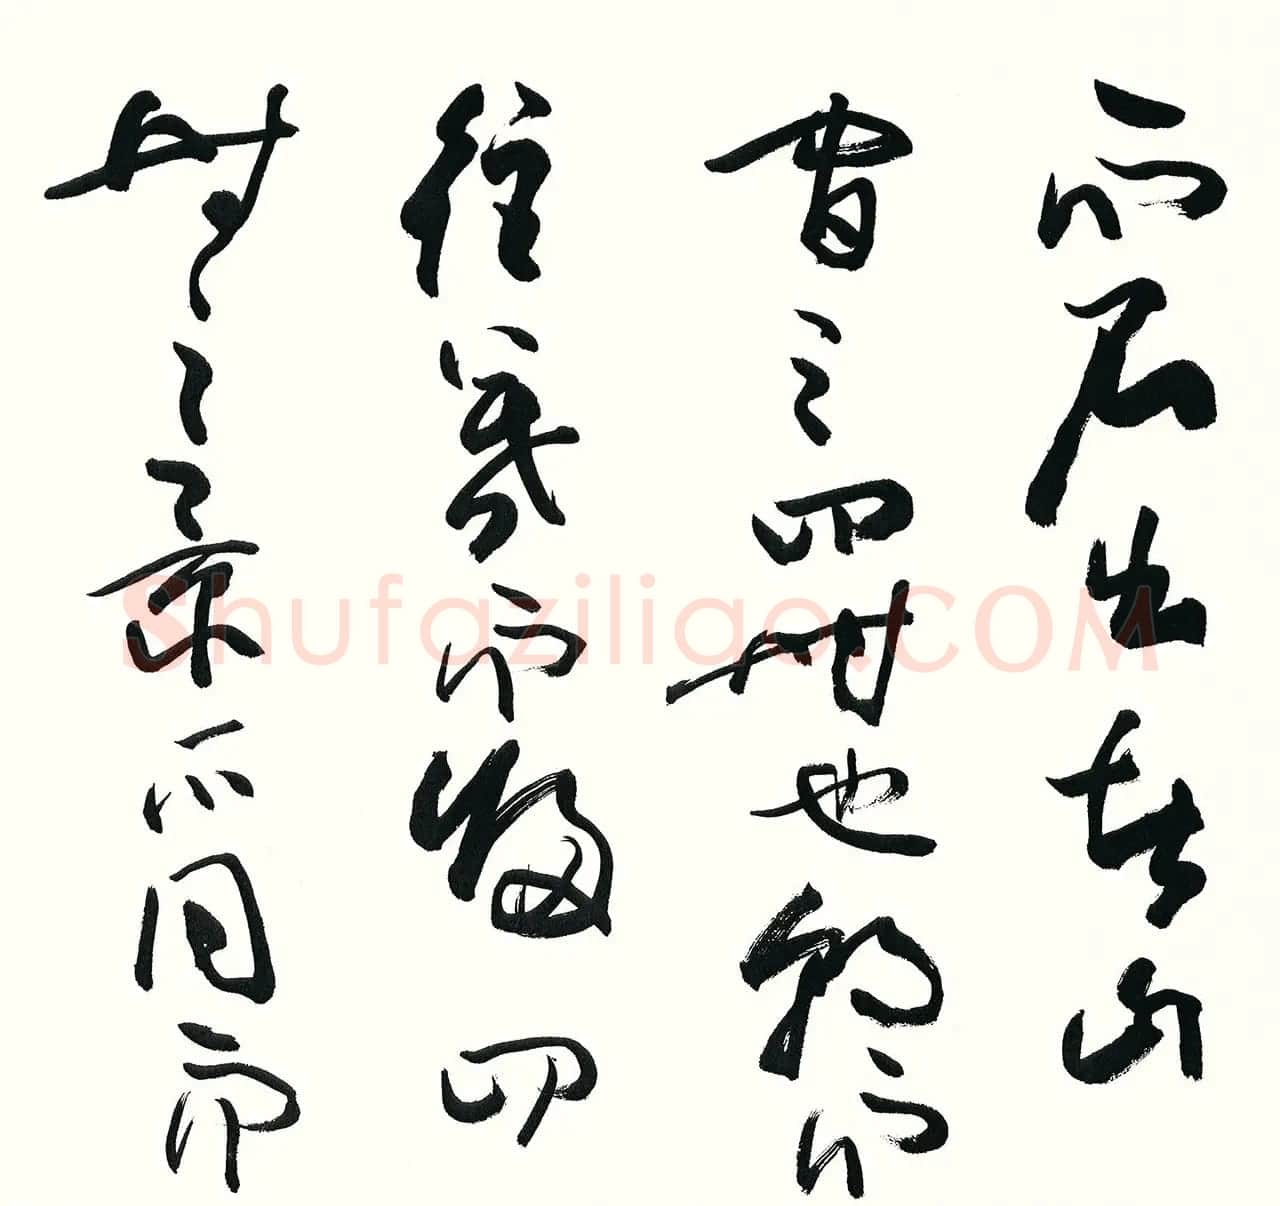 而石出者山
间之四时也朝而
往暮而归四
时之景不同而
Shufaziliao.COM